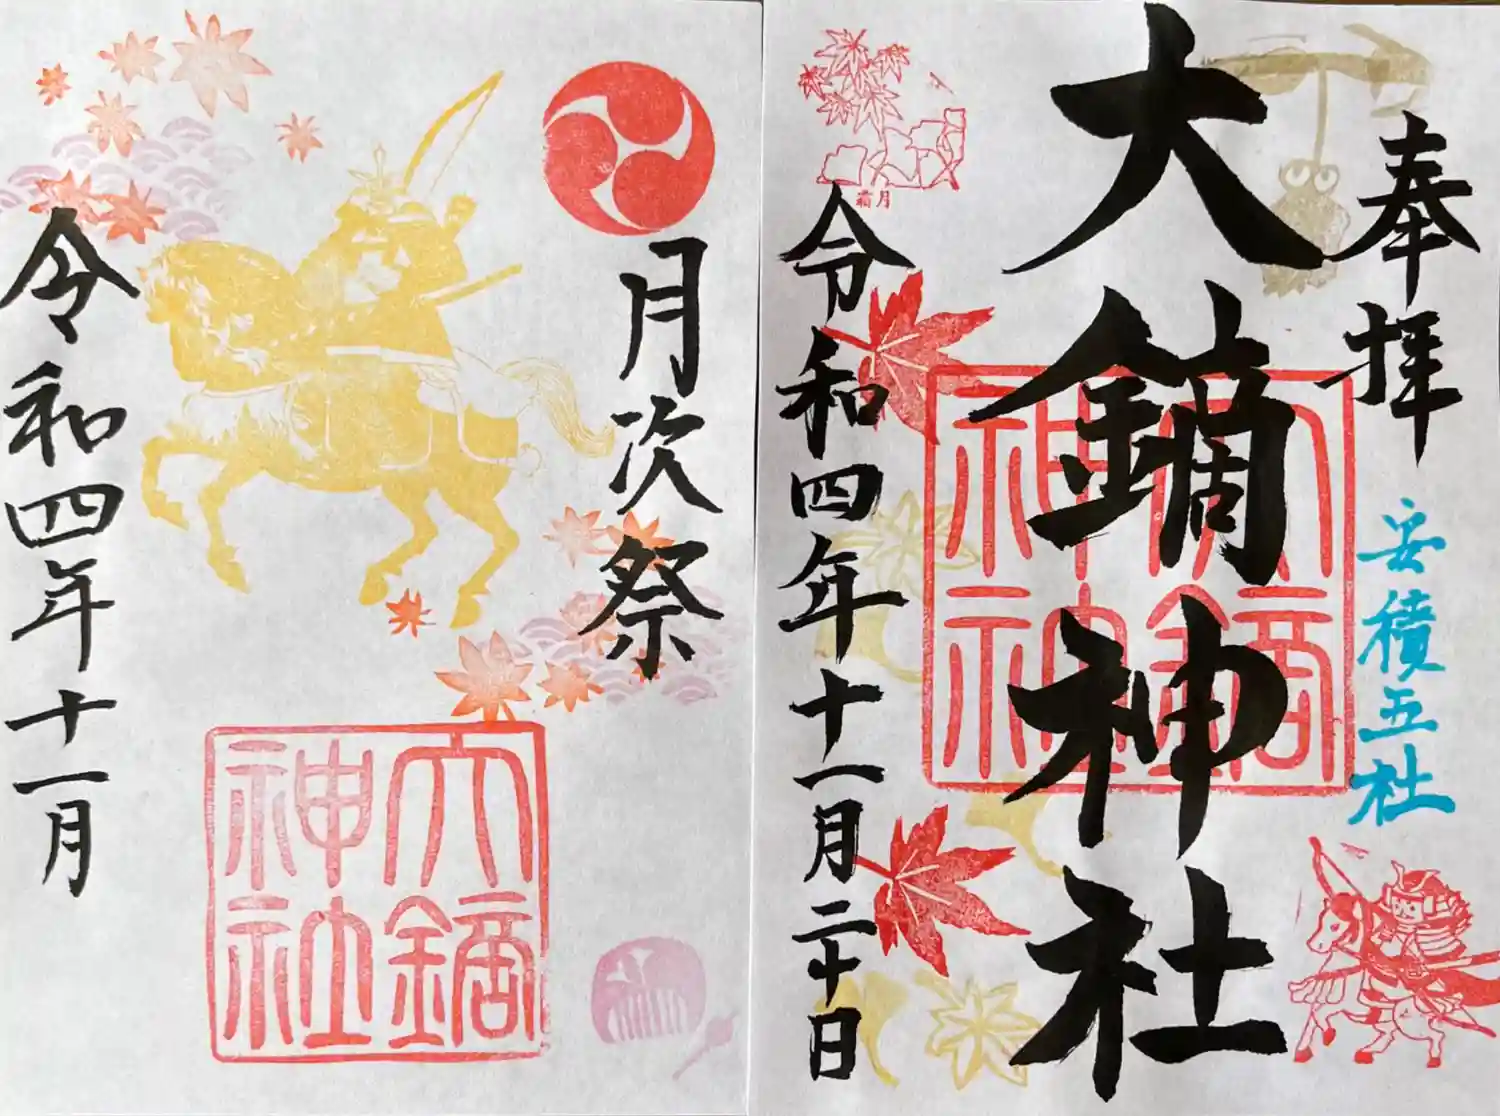 奉拝
安積五社
大鏑神社
大鏑神社
霜月
令和四年十一月二十日
月次祭
大鏑神社
令和四年十一月